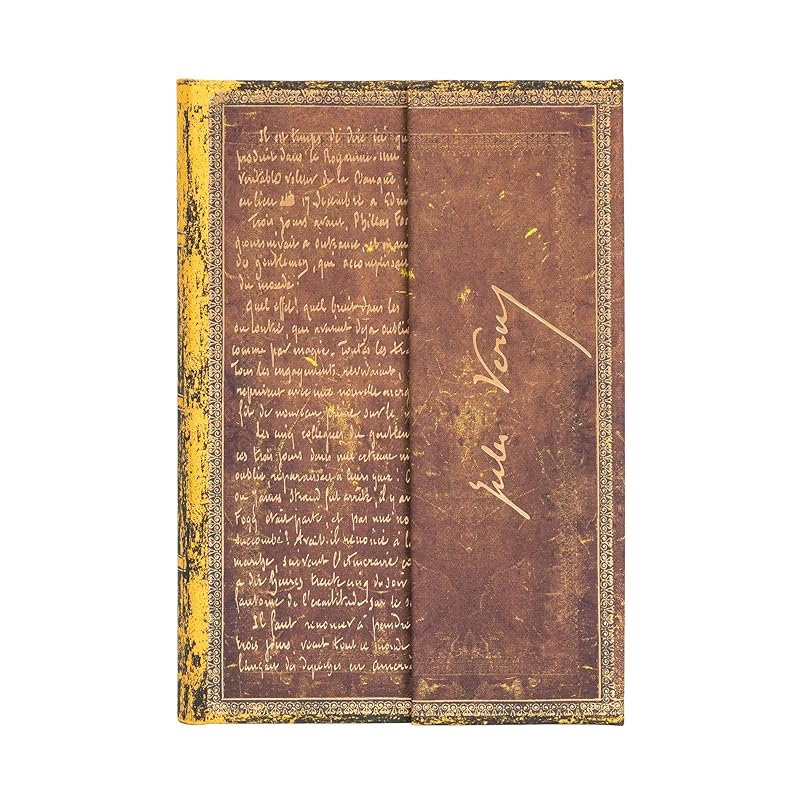 Il est temps de dire ici qu
produit dans le Royaume-Uni
veritable voleur de la Banque
eu lieu le 17 Decembre à Edim
Trois jours avant, Phileas Fo
poursuivait à outrance, et main
des gentlemen, qui accomplissai
du monde!
Quel effet! quel bruit dans les
ou contre, qui avaient deja oublié
comme par magie. Toutes les tra
Tous les engagements revivaient,
reprirent avec une nouvelle energ
fit de nouveau prime sur le
Les cinq collegues du gentlem
ces trois jours dans une certaine
oublié, reparaissait à leurs yeux!
ou James Strand fut arrêté, il y a
Fogg était parti, et pas une no
succombé? Avait-il renoncé à l
marche, suivant l'itineraire co
a dix heures trente cinq du soir
fantome de l'exactitude, sur le s
Il faut renoncer à peindre
trois jours, vecut tout ce monde
lançait des depeches en ameri
Jules Verne